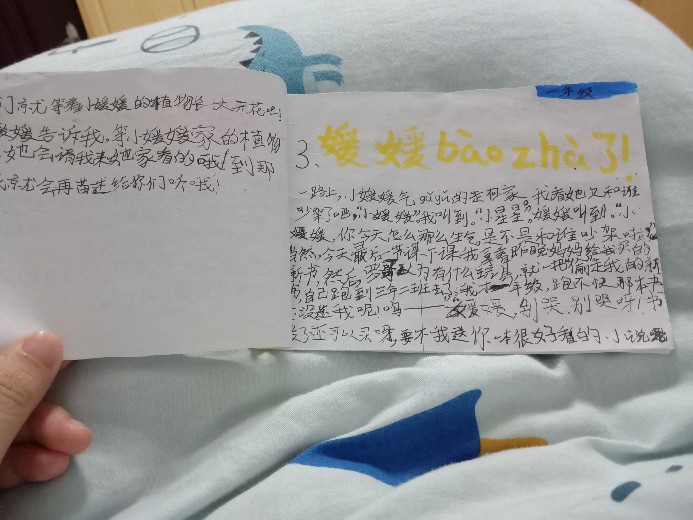 们就等着小媛媛的植物长大开花吧!
媛媛告诉我,等小媛媛家的植物
她会请我来她家看的哦!到那
就会再描述给你们听哦!
一年级
3、媛媛bào zhà了!
一路上,小媛媛气gūgū的走回家,我看她又和谁
吵架了吧,“小媛媛”我叫到。“小星星”媛媛叫到。“小
媛媛,你今天怎么那么生气是不是和谁吵架啦
当然,今天最后一节课下课我拿着昨晚妈妈给我买的
新书,然后 以为有什么 就一把偷走我的新
书自己跑到三年二班去了,我才一年级,跑不快那本书
还没还我呢!呜——”“媛媛,别哭,别哭呀!书
没了还可以买呀,要不我送你一本很好看的小说